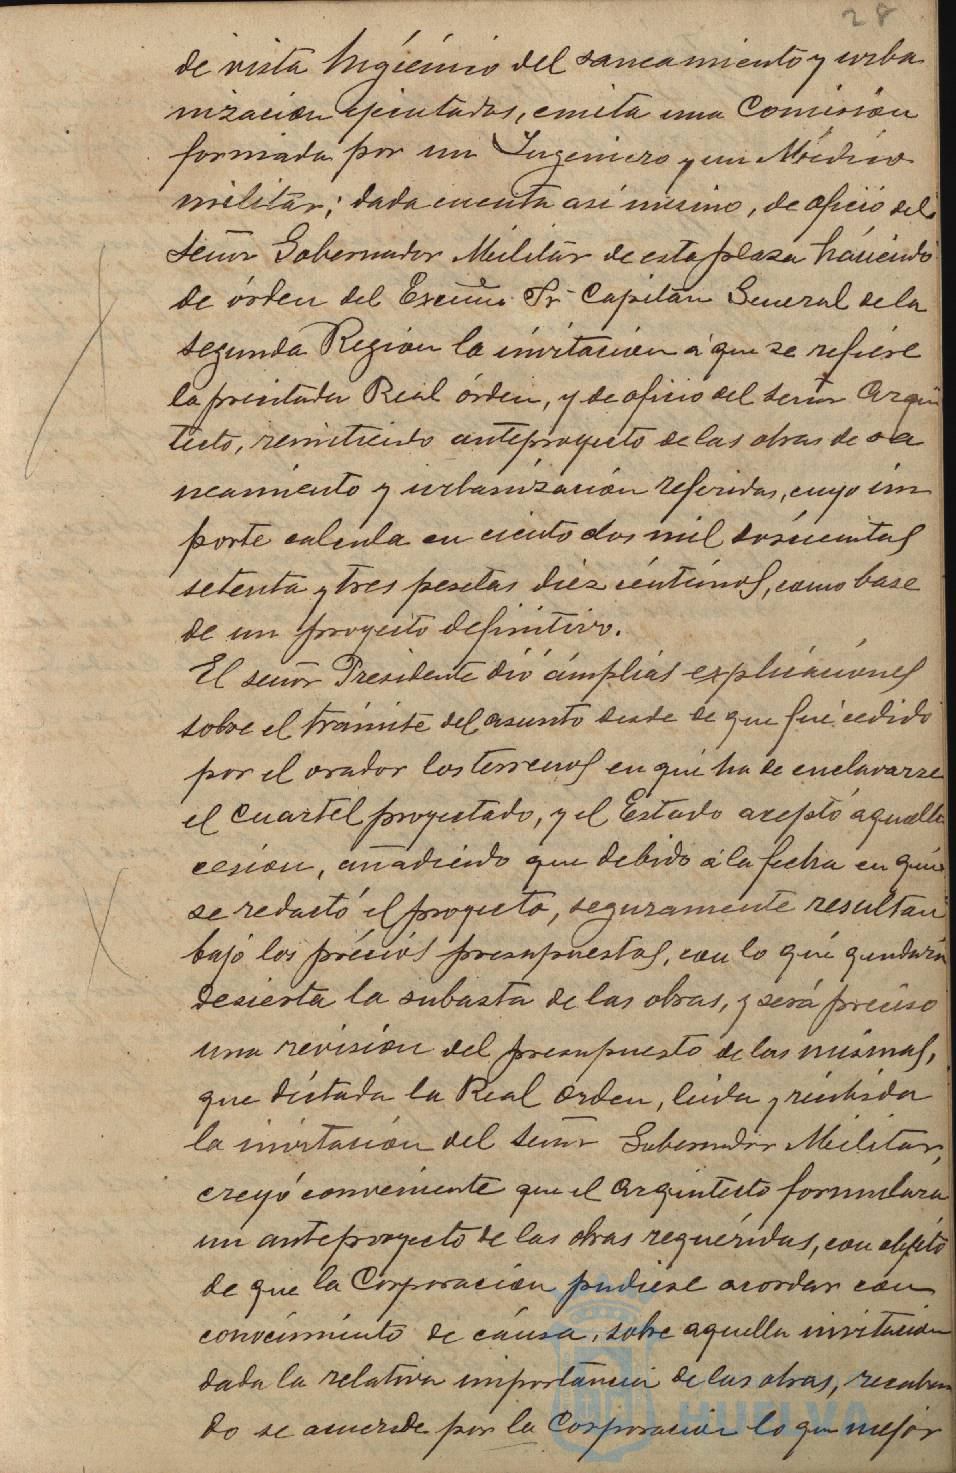 28
de vista higiénico del saneamiento y urba
nizacion ejecutadas, emita una Comisión
formada por un Ingeniero y un Médico
militar; dada cuenta asi mismo, de oficio del
señor Gobernador Militar de esta plaza haciendo
de órden del Excmo Sr. Capitan General de la
segunda Region la invitacion á que se refiere
la precitada Real órden, y de oficio del señor Arqui
tecto, remitiendo anteproyecto de las obras de sa
neamiento y urbanizacion referidas, cuyo im
porte calcula en ciento dos mil doscientas
setenta y tres pesetas diez céntimos, como base
de un proyecto definitivo.
El señor Presidente dió ámplias explicaciones
sobre el trámite del asunto desde de que fué cedido
por el orador los terrenos en qué ha de enclavarse
el cuartel proyectado, y el Estado aceptó aquella
cesion, añadiendo que debido á la fecha en que
se redactó el proyecto, seguramente resultan
bajo los précios presupuestos, con lo qué quedará
desierta la subasta de las obras, y será preciso
una revision del presupuesto de las mismas,
que dictada la Real orden, leida y recibida
la invitacion del señor Gobernador Militar,
creyó conveniente que el arquitecto formulara
un anteproyecto de las obras requeridas, con objéto
de que la Corporacion pudiese acordar con
conocimiento de causa, sobre aquella invitacion
dada la relativa importancia de las obras, recaban
do se acuerde por la Corporacion lo que mejor
HUELVA